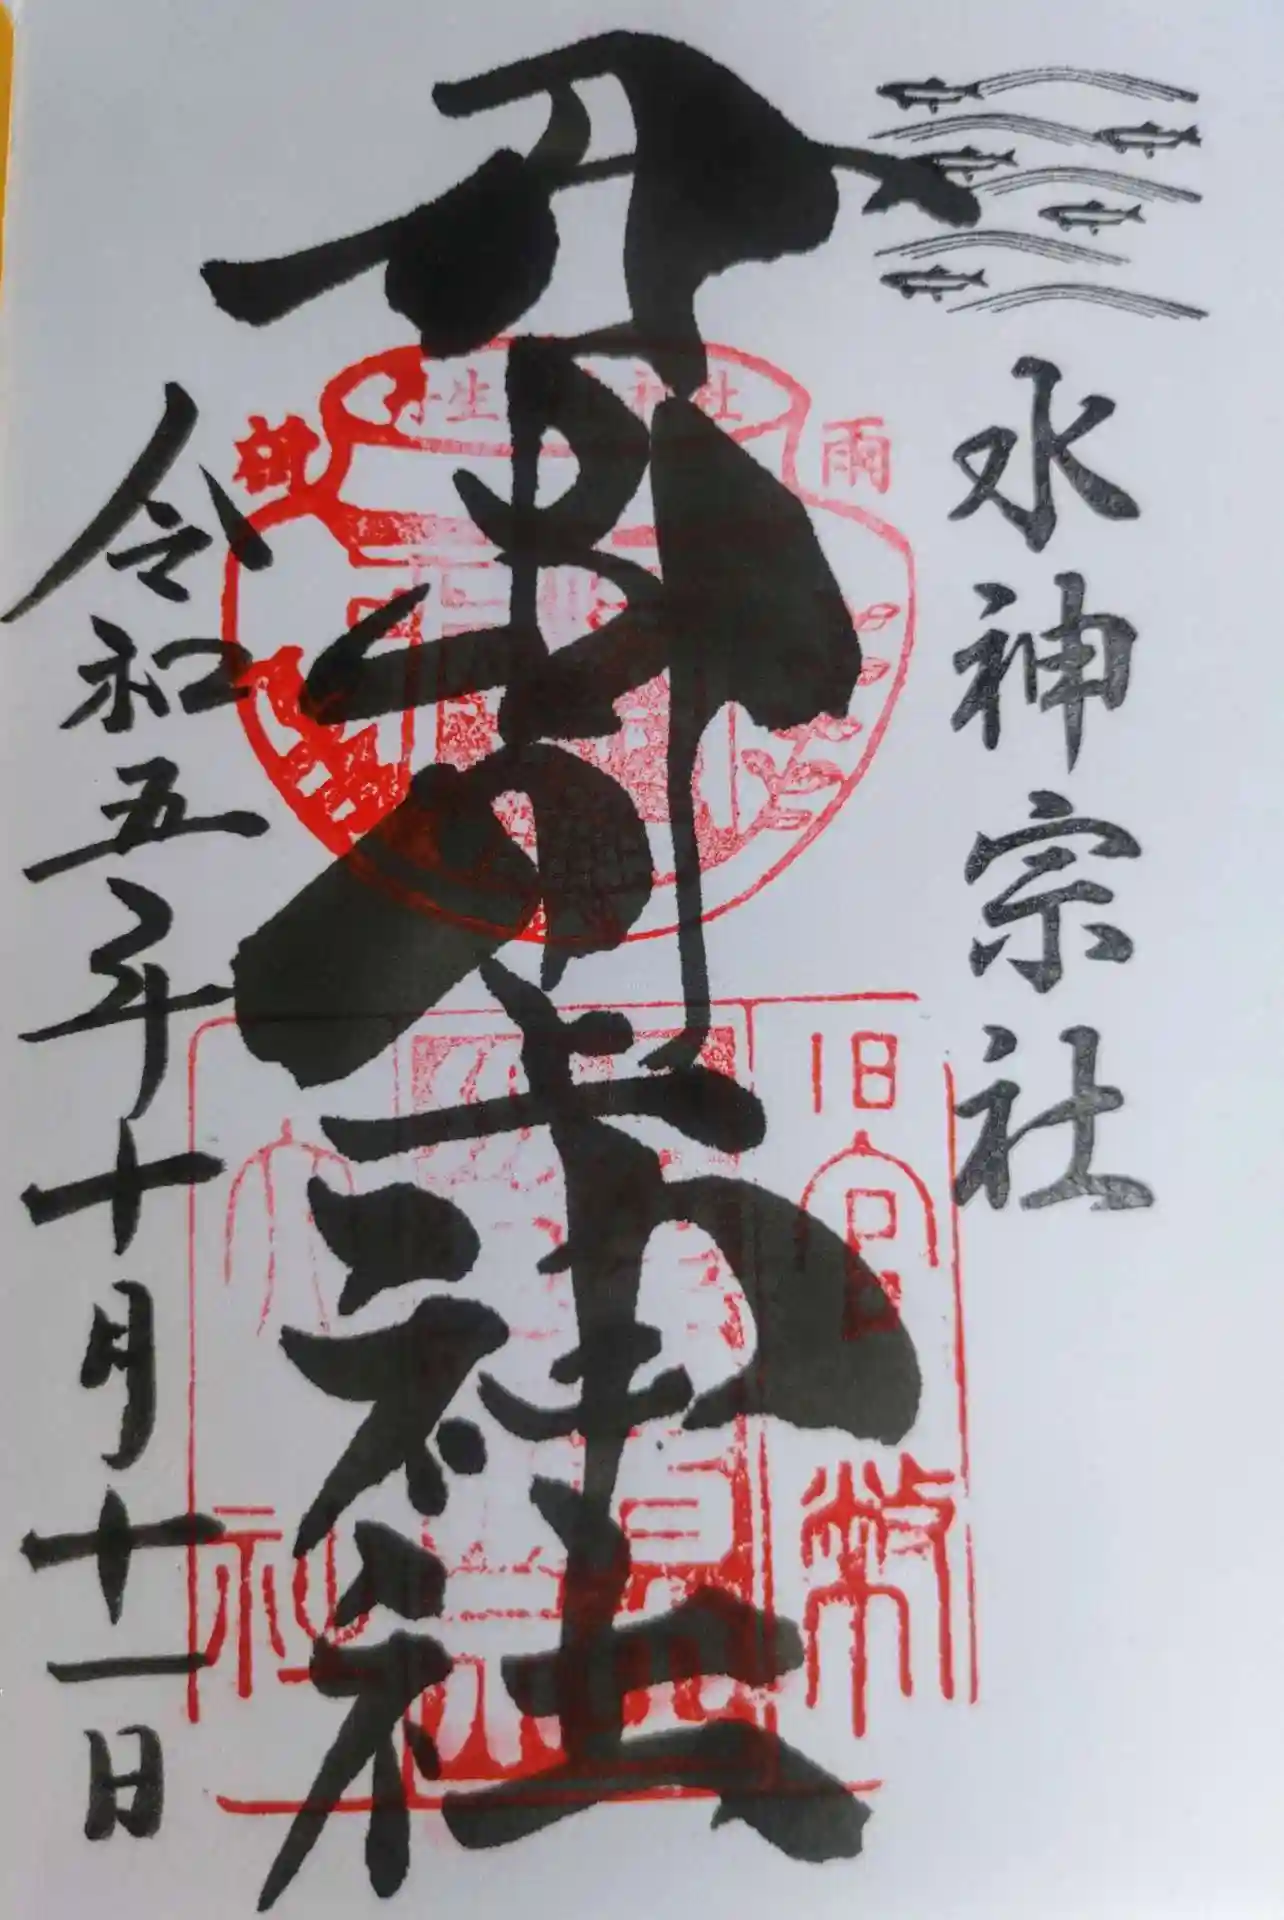 水神宗社
丹生川上神社
令和五年十月十一日
雨
旧官幣
大社